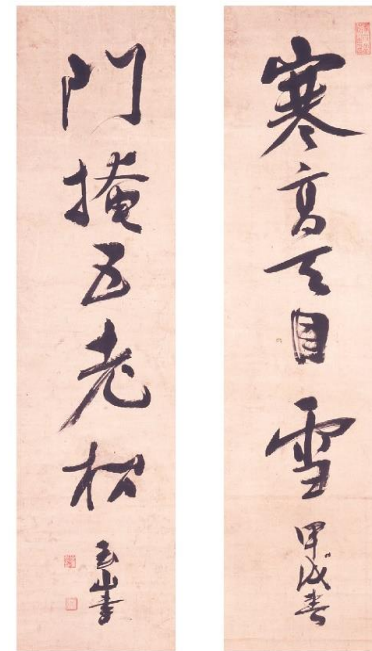 寒高天目雪
甲戌春
門掩五老松
玉山書